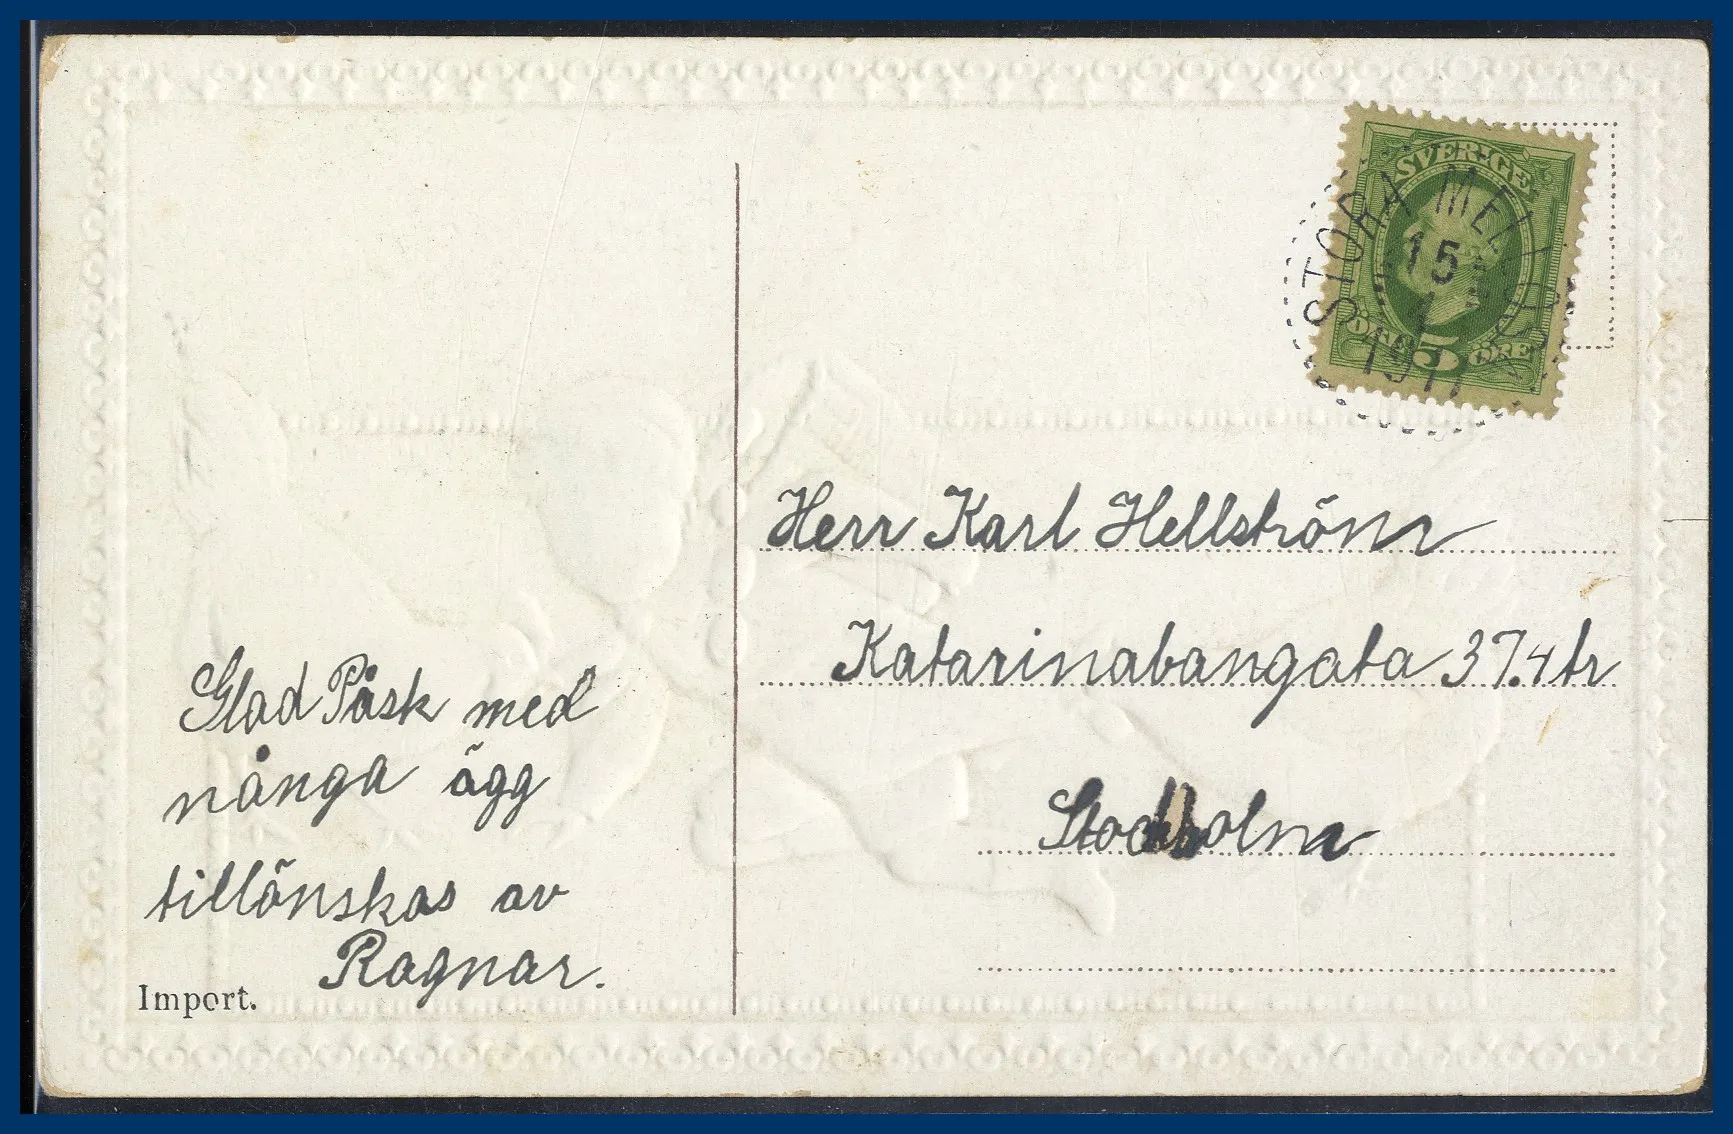 SVERIGE
ÖRE 5 ÖRE
STORA MELLÖSA
15
4
1911
Herr Karl Hellström
Katarinabangata 37.4 tr
Stockholm
Glad Påsk med
nånga ägg
tillönskas av
Ragnar.
Import.